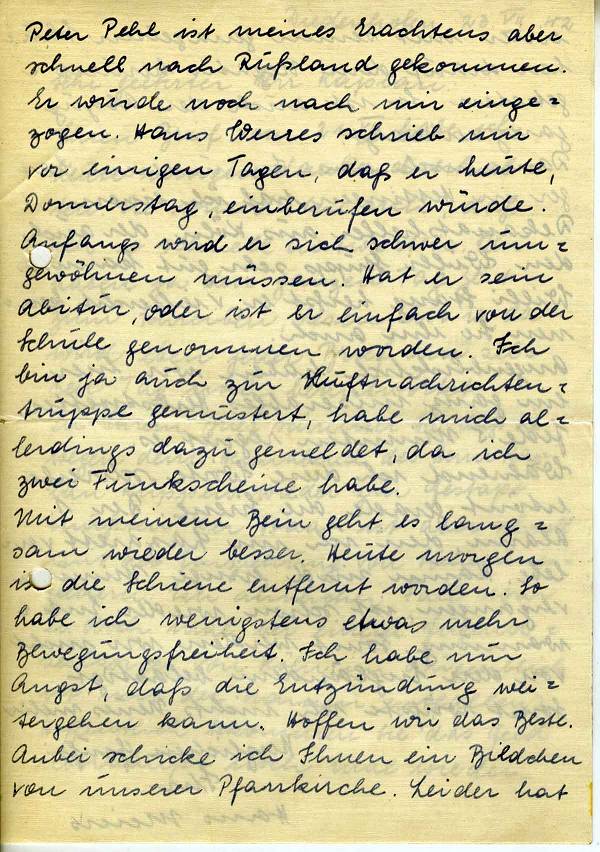 Peter Pehl ist meines Erachtens aber
schnell nach Rußland gekommen.
Er wurde noch nach mir einge=
zogen. Hans Werres schrieb mir
vor einigen Tagen, daß er heute,
Donnerstag, einberufen würde.
Anfangs wird er sich schwer um=
gewöhnen müssen. Hat er sein
Abitur, oder ist er einfach von der
Schule genommen worden. Ich
bin ja auch zur Luftnachrichten=
truppe gemustert, habe mich al=
lerdings dazu gemeldet, da ich
zwei Funkscheine habe.
Mit meinem Bein geht es lang=
sam wieder besser. Heute morgen
is die Schiene entfernt worden. So
habe ich wenigstens etwas mehr
Bewegungsfreiheit. Ich habe nur
Angst, daß die Entzündung wei=
tergehen kann. Hoffen wir das Beste.
Anbei schicke ich Ihnen ein Bildchen
von unserer Pfarrkirche. Leider hat